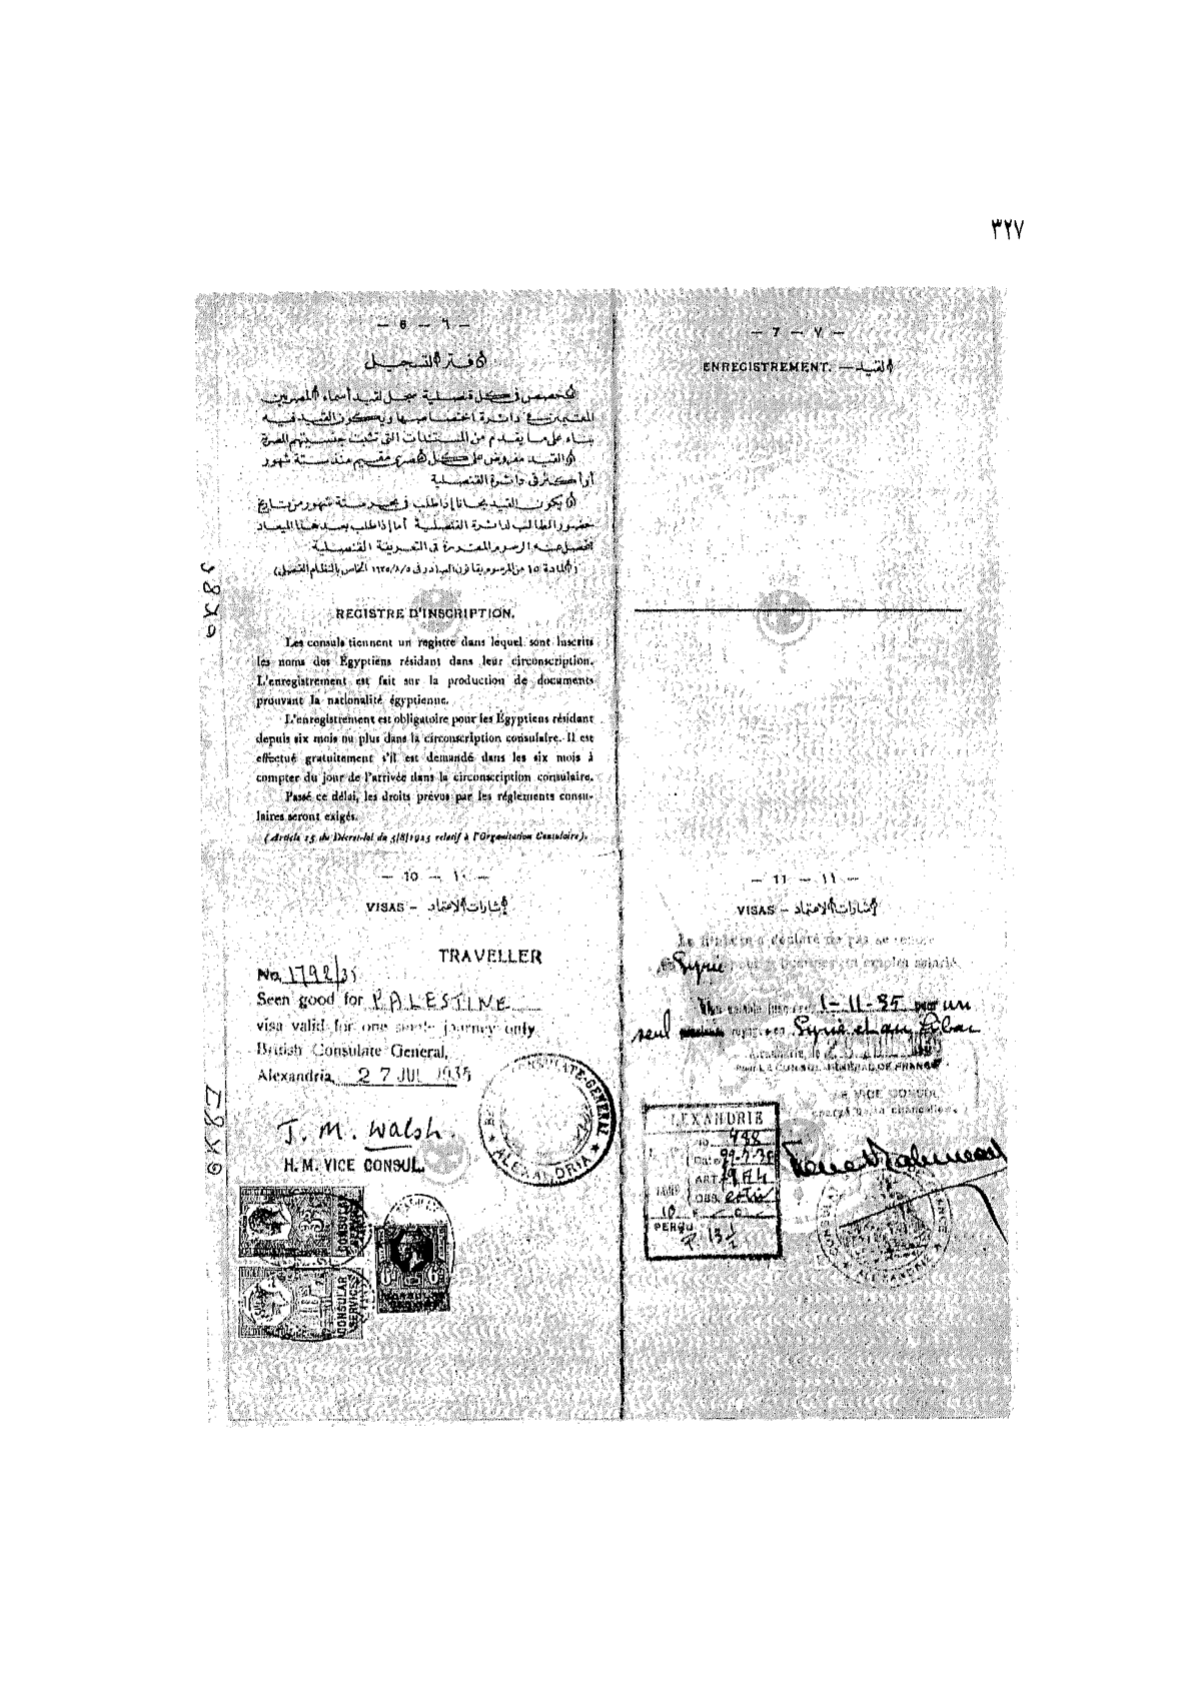 ٣٢٧
— 6 — ٦ —
دفتر التسجيل
يخصص في كل قنصلية سجل لقيد أسماء المصريين
المقيمين في دائرة اختصاصها ويكون القيد فيه
بناء على ما يقدم من المستندات التي تثبت جنسيتهم المصرية
والقيد مفروض على كل مصري مقيم منذ ستة شهور
أو أكثر في دائرة القنصلية
ويكون القيد مجانا إذا طلب في بحر ستة شهور من تاريخ
حضور الطالب لدائرة القنصلية أما إذا طلب بعد هذا الميعاد
فتحصل عنه الرسوم المقررة في التعريفة القنصلية
(المادة ١٥ من المرسوم بقانون الصادر في ١٩٢٥/٨/٥ الخاص بالنظام القنصلي)
REGISTRE D'INSCRIPTION.
Les consuls tiennent un registre dans lequel sont inscrits
les noms des Égyptiens résidant dans leur circonscription.
L'enregistrement est fait sur la production de documents
prouvant la nationalité égyptienne.
L'enregistrement est obligatoire pour les Égyptiens résidant
depuis six mois ou plus dans la circonscription consulaire. Il est
effectué gratuitement s'il est demandé dans les six mois à
compter du jour de l'arrivée dans la circonscription consulaire.
Passé ce délai, les droits prévus par les règlements consu-
laires seront exigés.
(Article 15 du Décret-loi du 5/8/1925 relatif à l'Organisation Consulaire).
— 7 — ٧ —
ENREGISTREMENT. — القيد
— 10 — ١٠ —
VISAS — إشارات الاعتماد
TRAVELLER
No. 1792/35
Seen good for PALESTINE
visa valid for one single journey only
British Consulate General,
Alexandria, 27 JUL 1935
J. M. Walsh.
H.M. VICE CONSUL.
CONSULATE-GENERAL
★ ALEXANDRIA ★
CONSULAR
SERVICE
CONSULAR
SERVICE
6D 6D
— 11 — ١١ —
VISAS — إشارات الاعتماد
Le titulaire a déclaré ne pas se rendre
en Syrie pour y occuper un emploi salarié
Visa valable jusqu'au 1-11-35 pour un
seul voyage en Syrie et au Liban
Alexandrie, le
POUR LE CONSUL GÉNÉRAL DE FRANCE
LE VICE CONSUL
chargé de la chancellerie
ALEXANDRIE
No. 488
Date
ART.
OBS.
PERÇU
CONSULAT
FRANCE
★ ALEXANDRIE ★